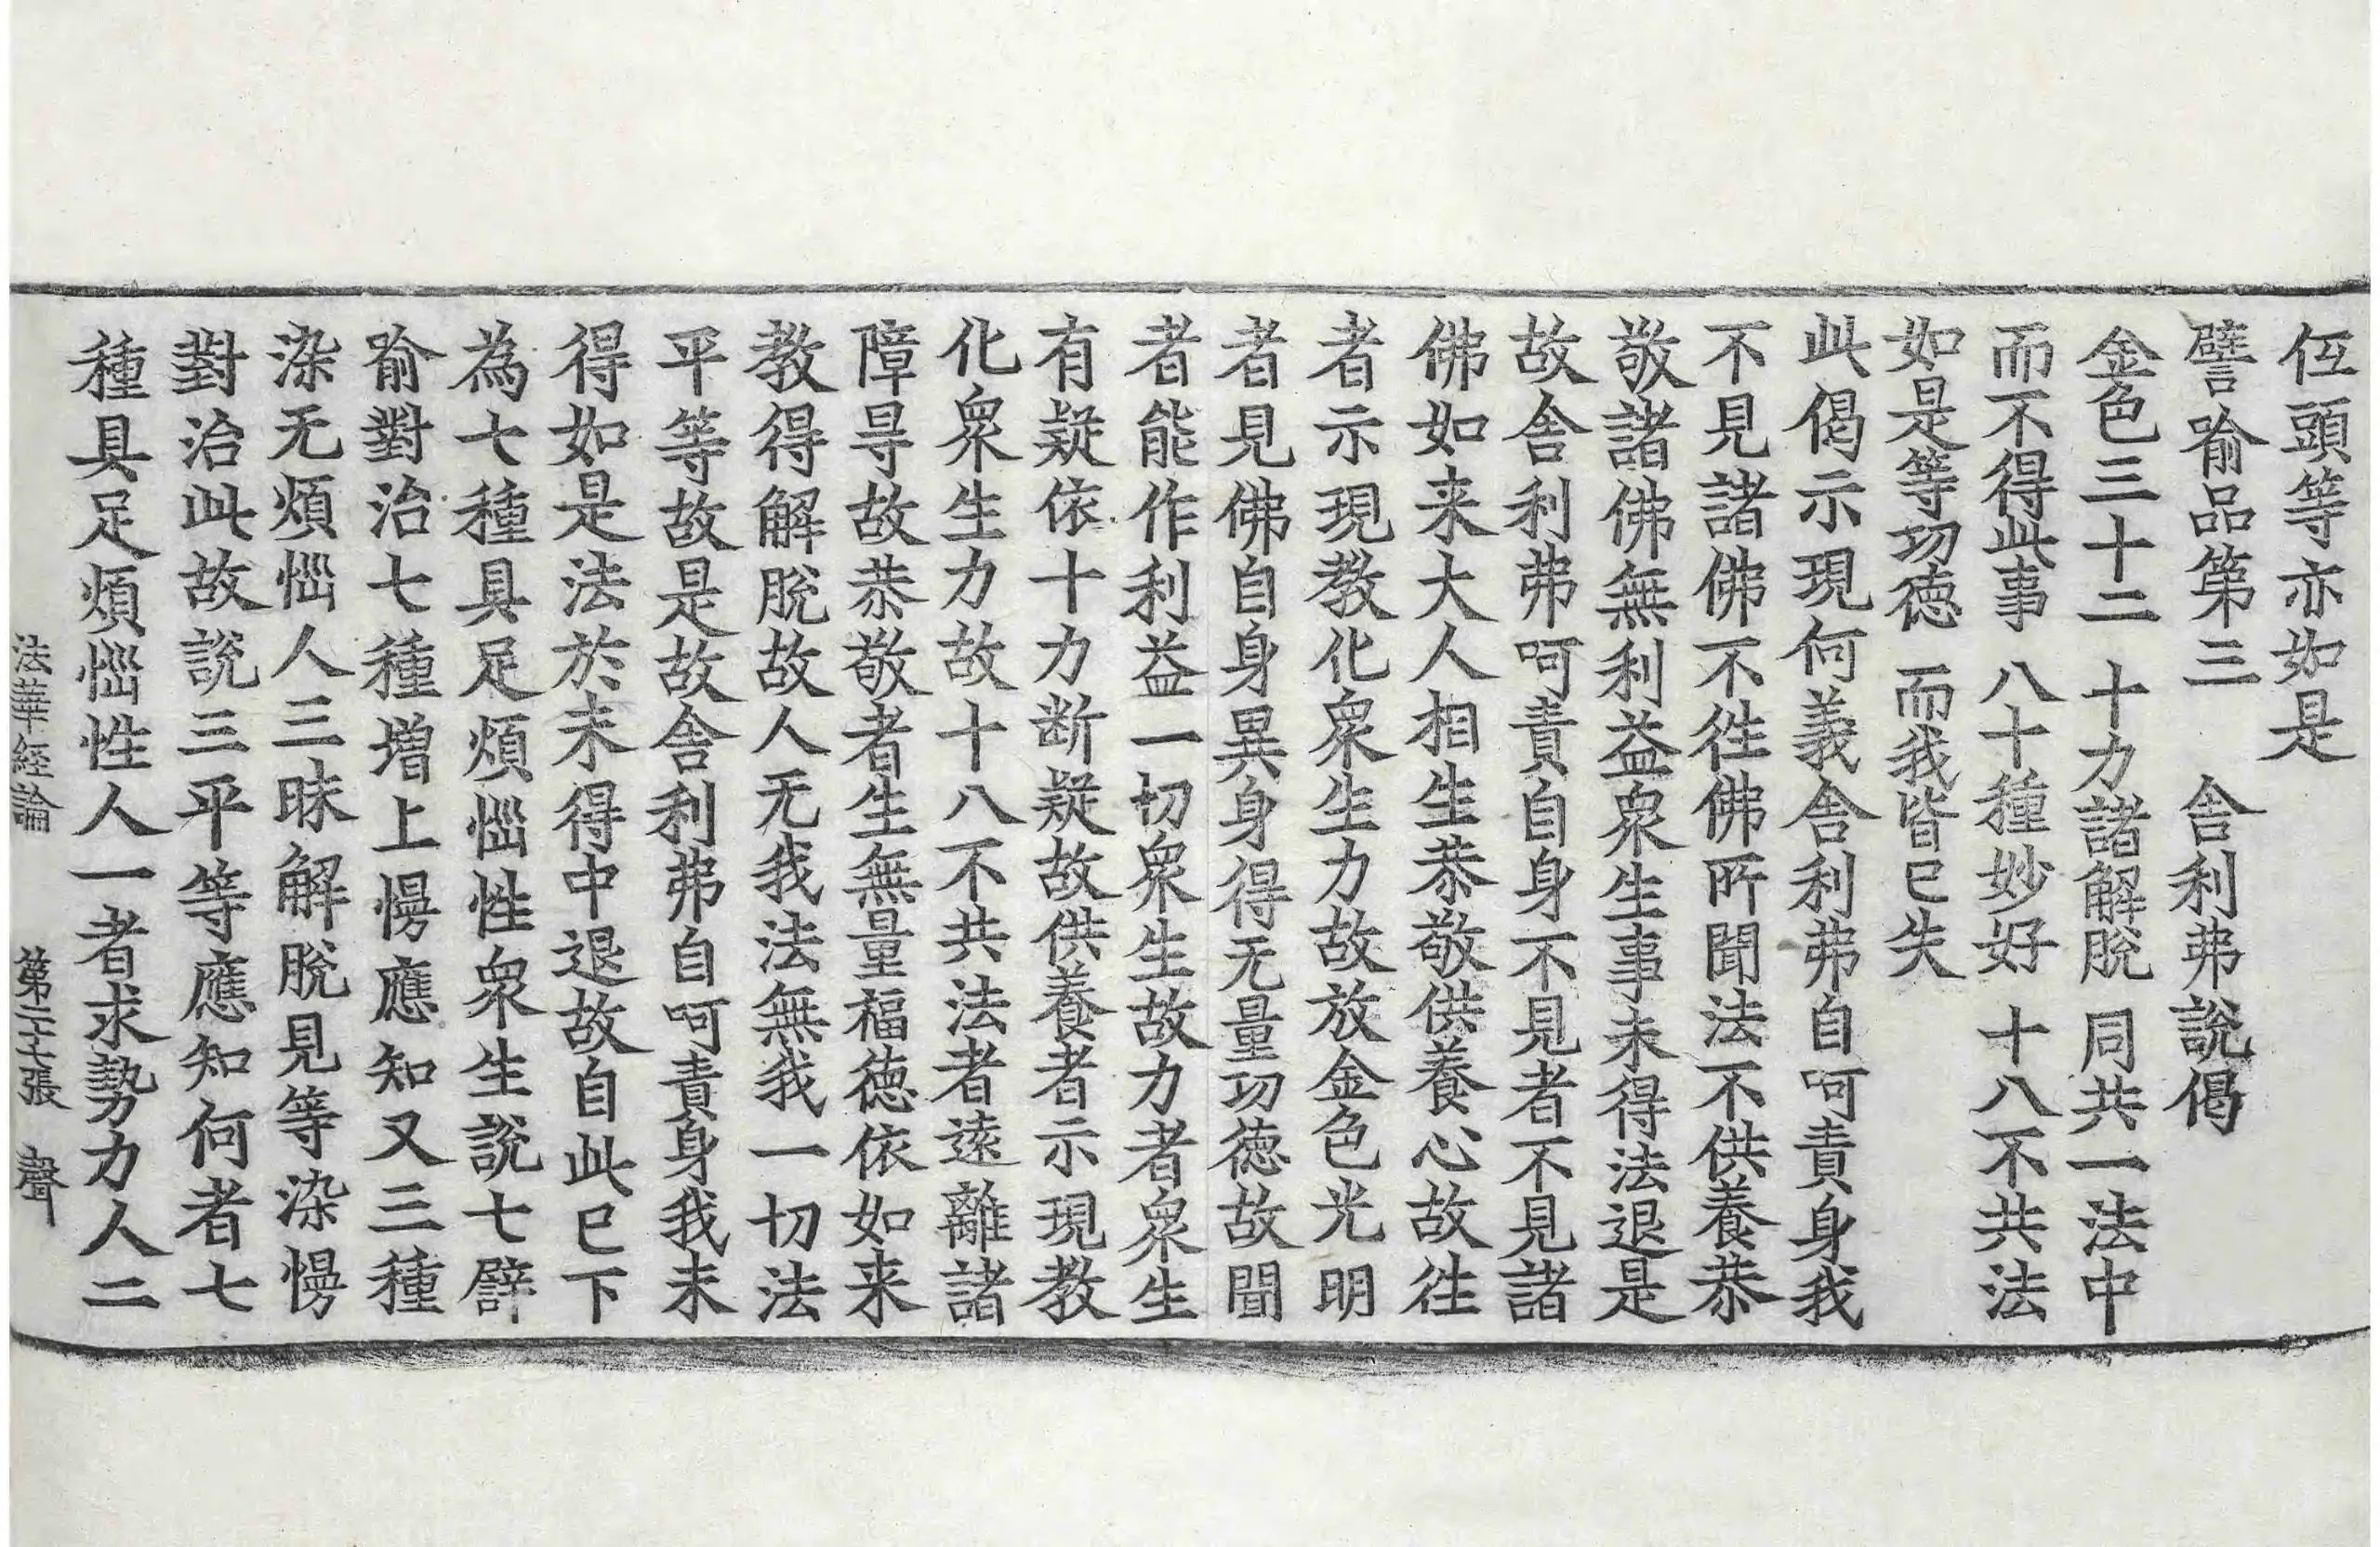 仾頭等亦如是
譬喻品第三 舍利弗說偈
金色三十二 十力諸解脫 同共一法中
而不得此事 八十種妙好 十八不共法
如是等功徳 而我皆已失
此偈示現何義舍利弗自呵責身我
不見諸佛不徃佛所聞法不供養恭
敬諸佛無利益衆生事未得法退是
故舍利弗呵責自身不見者不見諸
佛如来大人相生恭敬供養心故徃
者示現教化衆生力故放金色光明
者見佛自身異身得无量功徳故聞
者能作利益一切衆生故力者衆生
有疑依十力断疑故供養者示現教
化衆生力故十八不共法者遠離諸
障㝵故恭敬者生無量福徳依如来
教得解脫故人无我法無我一切法
平等故是故舍利弗自呵責身我未
得如是法於未得中退故自此已下
為七種具足煩惱性衆生說七譬
喻對治七種増上慢應知又三種
染无煩惱人三昧解脫見等染慢
對治此故說三平等應知何者七
種具足煩惱性人一者求勢力人二
法華經論 第二十七張 聲